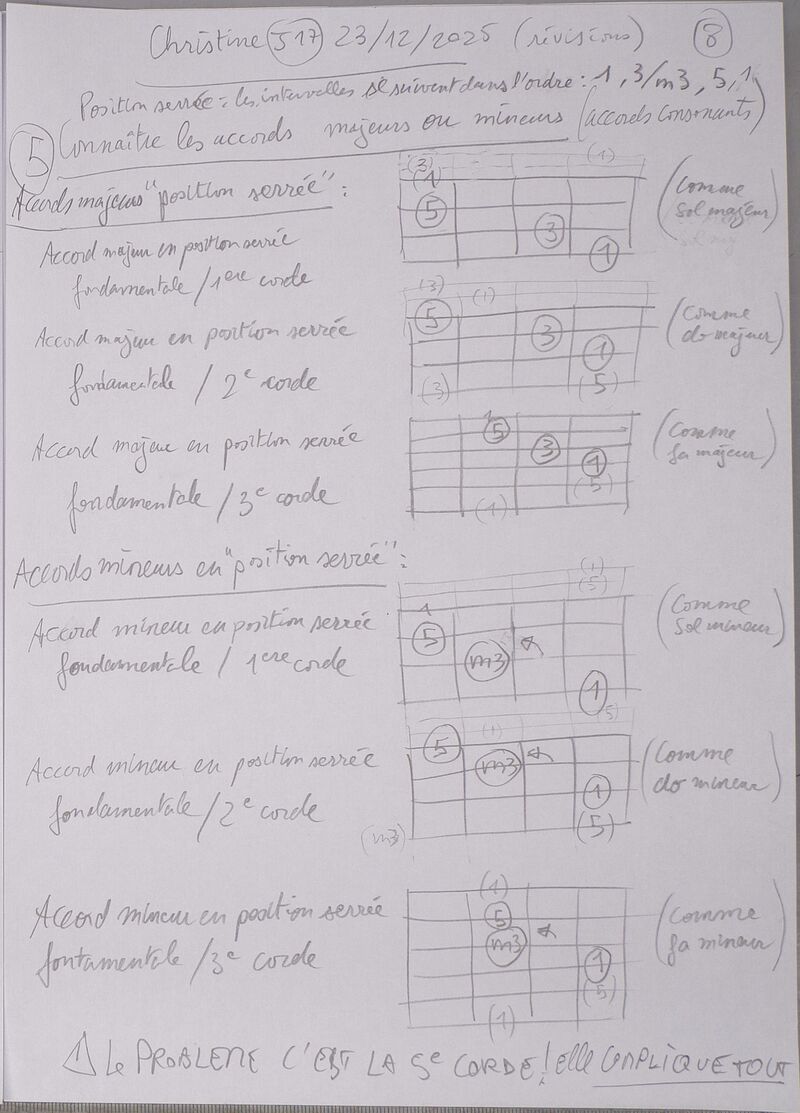 Christine 517 23/12/2025 (révisions) 8
Position serrée = les intervalles se suivent dans l'ordre : 1, 3/m3, 5, 1
5 Connaître les accords majeurs ou mineurs (accords consonants)
Accords majeurs "position serrée" :
(3) (1)
1
5
3
1
(Comme sol majeur)
Accord majeur en position serrée
fondamentale / 1ere corde
(3) (1)
5
3
1
(3) (5)
(Comme do majeur)
Accord majeur en position serrée
fondamentale / 2e corde
5
3
1
(5)
(1)
(Comme fa majeur)
Accord majeur en position serrée
fondamentale / 3e corde
Accords mineurs en "position serrée" :
(1)
(5)
1
5
m3
1
(Comme sol mineur)
Accord mineur en position serrée
fondamentale / 1ere corde
(1) (5)
5
m3
1
(m3) (5)
(Comme do mineur)
Accord mineur en position serrée
fondamentale / 2e corde
(1)
5
m3
1
(5)
(1)
(Comme fa mineur)
Accord mineur en position serrée
fontamentale / 3e corde
LE PROBLEME C'EST LA 5e CORDE ! elle COMPLIQUE TOUT